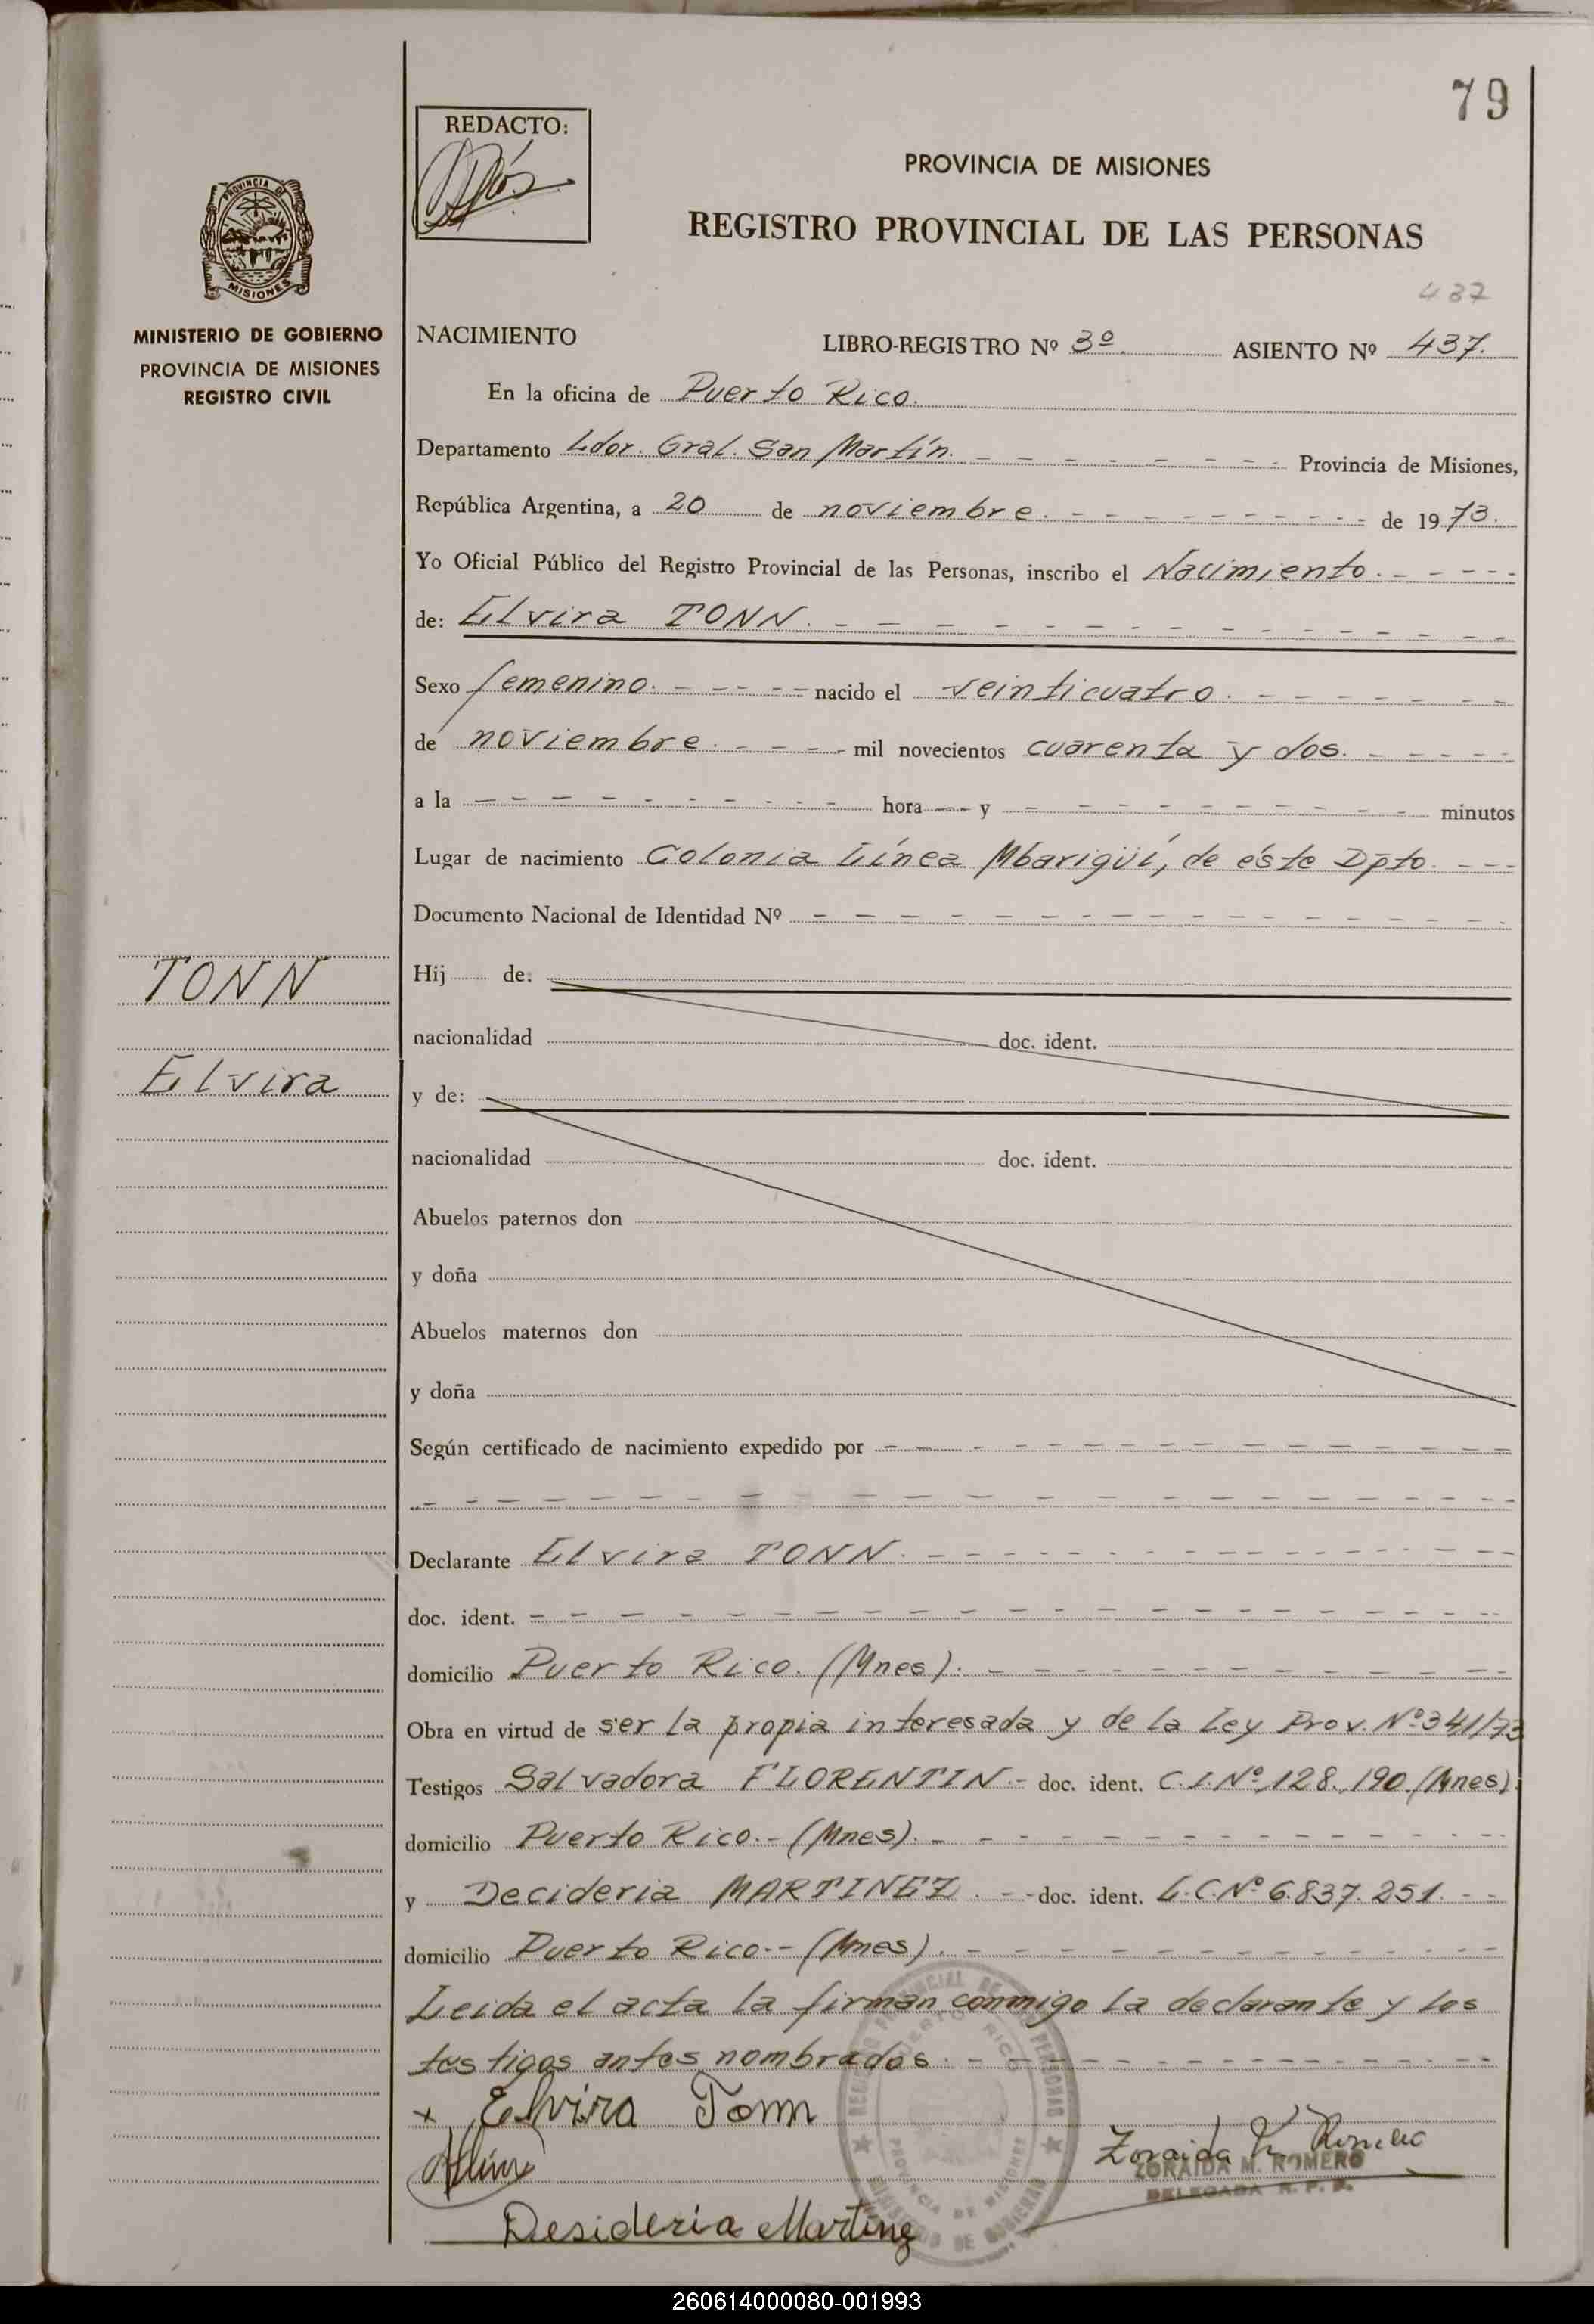 79
REDACTO:
PROVINCIA DE MISIONES
REGISTRO PROVINCIAL DE LAS PERSONAS
PROVINCIA D
MISIONES
437
MINISTERIO DE GOBIERNO
PROVINCIA DE MISIONES
REGISTRO CIVIL
NACIMIENTO LIBRO-REGISTRO Nº 3º. ASIENTO Nº 437.
En la oficina de Puerto Rico.
Departamento Ldor. Gral. San Martín. Provincia de Misiones,
República Argentina, a 20 de noviembre. de 1973.
Yo Oficial Público del Registro Provincial de las Personas, inscribo el Nacimiento.
de: Elvira TONN.
Sexo femenino. nacido el veinticuatro.
de noviembre. mil novecientos cuarenta y dos.
a la hora y minutos
Lugar de nacimiento Colonia Línea Mbarigüí, de éste Dpto.
Documento Nacional de Identidad Nº
TONN
Hij de:
nacionalidad doc. ident.
Elvira
y de:
nacionalidad doc. ident.
Abuelos paternos don
y doña
Abuelos maternos don
y doña
Según certificado de nacimiento expedido por
Declarante Elvira TONN.
doc. ident.
domicilio Puerto Rico. (Mnes).
Obra en virtud de ser la propia interesada y de la Ley Prov. Nº 341/73
Testigos Salvadora FLORENTIN.- doc. ident. C.I.Nº 128.190.(Mnes).
domicilio Puerto Rico.- (Mnes).
y Decideria MARTINEZ. doc. ident. L.C.Nº 6.837.251.
domicilio Puerto Rico.- (Mnes).
Leida el acta la firman conmigo la declarante y los
testigos antes nombrados.
x Elvira Tonn
Zoraida Romero
ZORAIDA M. ROMERO
DELEGADA R. P. P.
Desideria Martinez
REGISTRO PROVINCIAL DE LAS PERSONAS
PUERTO RICO
PROVINCIA DE MISIONES
MINISTERIO DE GOBIERNO
260614000080-001993